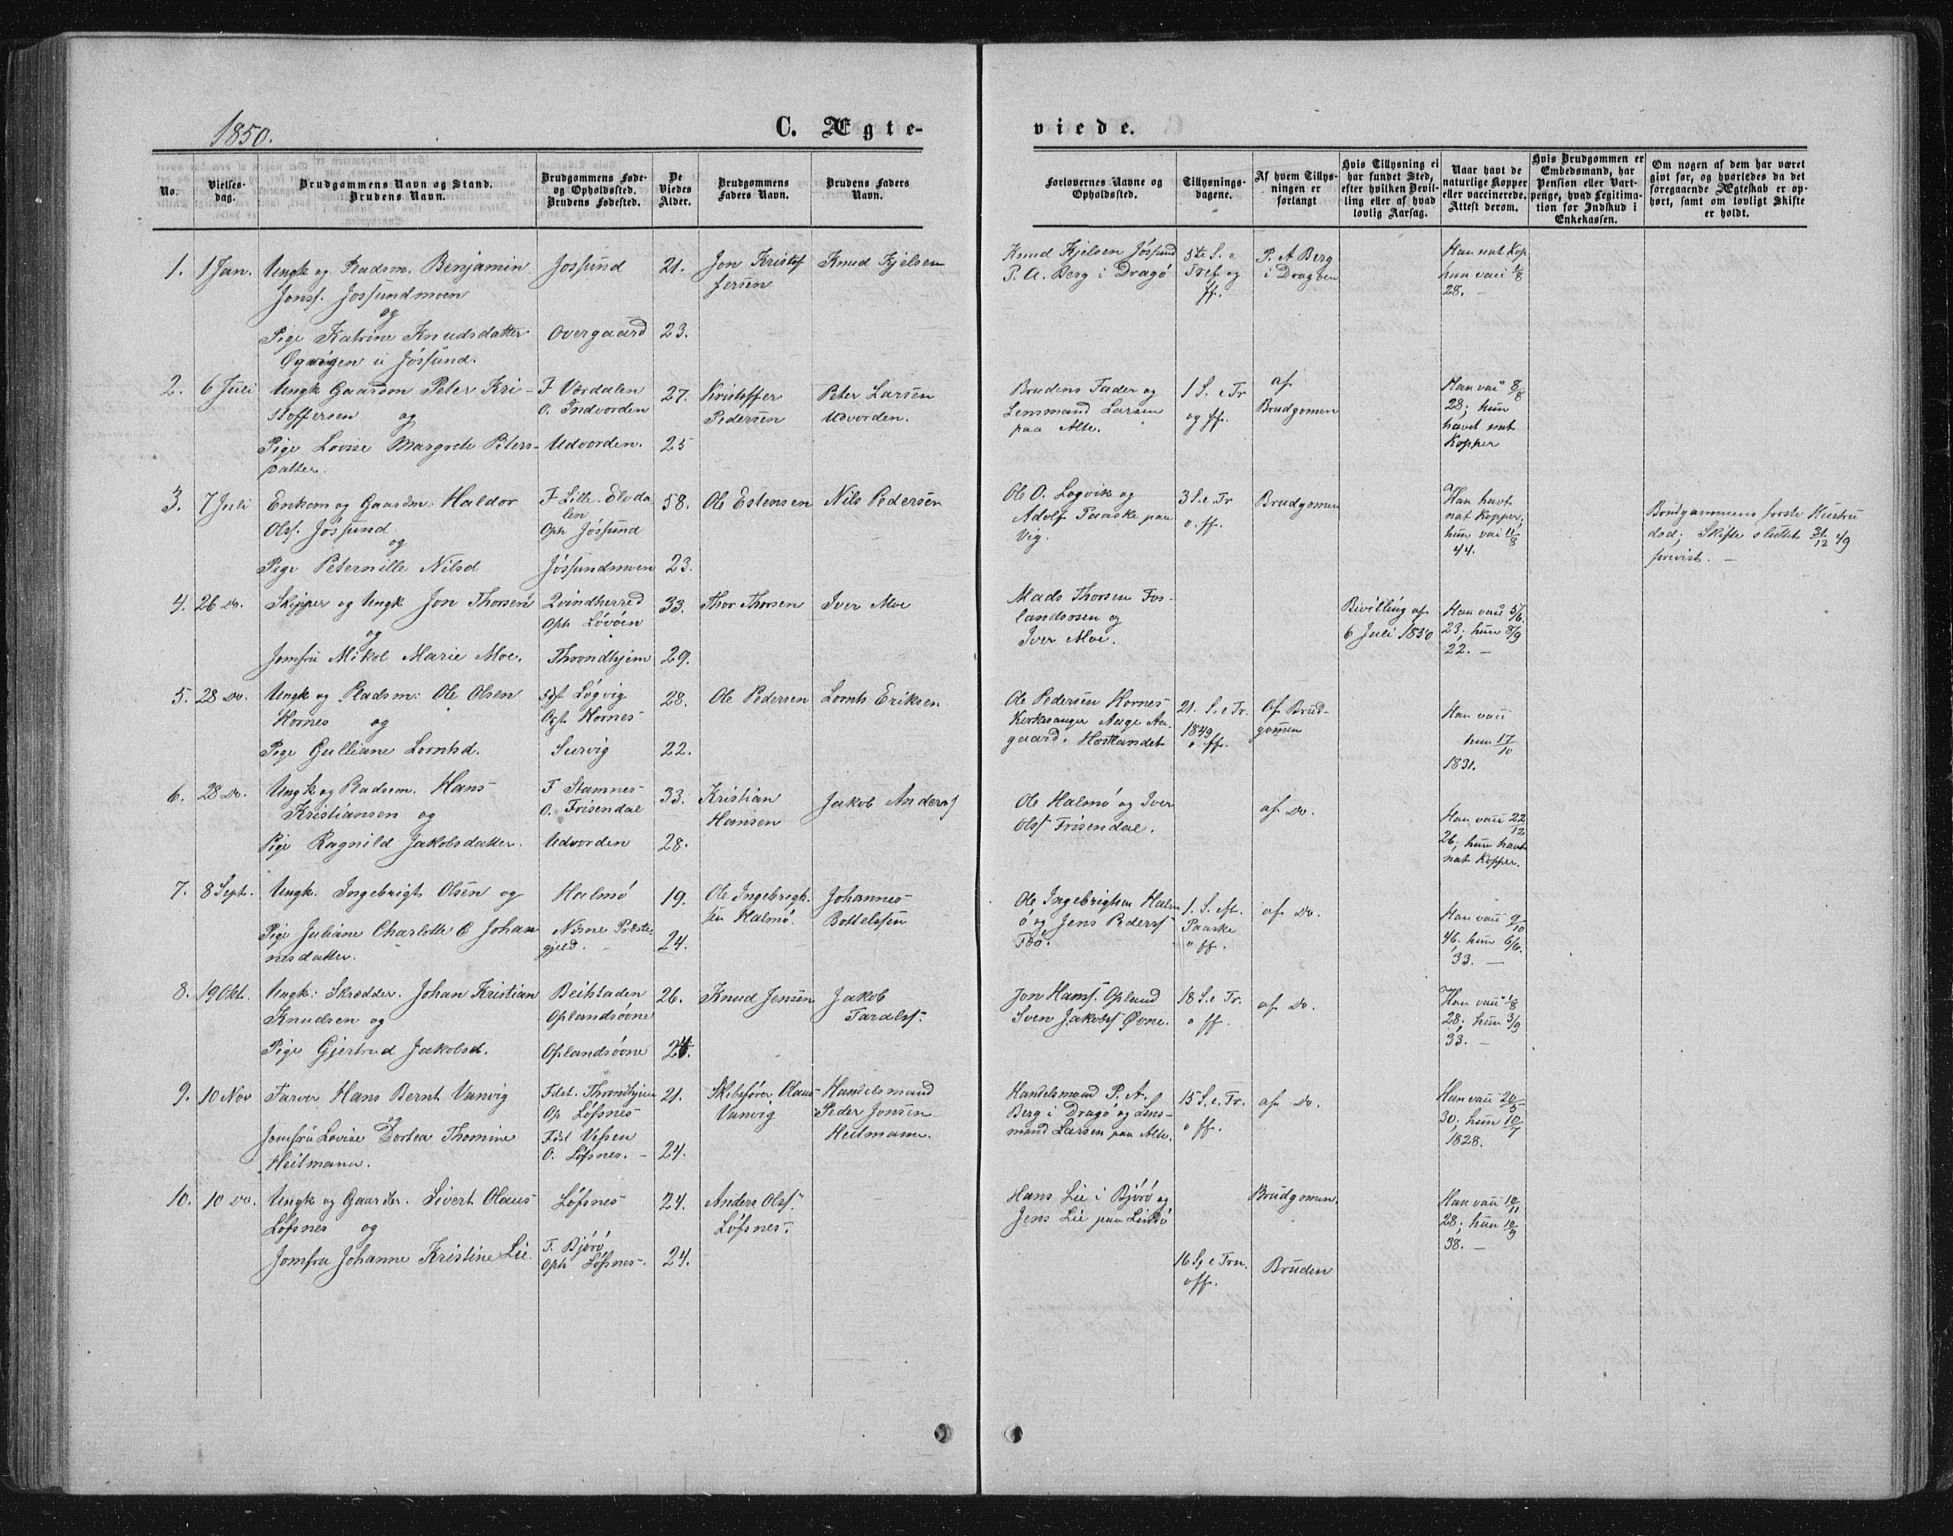 1850.
C. Ægte-
viede.
No.
Vielses-
dag.
Brudgommens Navn og Stand.
Brudens Navn.
Brudgommens Føde-
og Opholdssted.
Brudens Fødested.
De
Viedes
Alder.
Brudgommens
Faders Navn.
Brudens Faders
Navn.
Forlovernes Navne og
Opholdssted.
Tillysnings-
dagene.
Af hvem Tillys-
ningen er
forlangt
Hvis Tillysning ei
har fundet Sted,
efter hvilken Bevil-
ling eller af hvad
lovlig Aarsag.
Naar havt de
naturlige Kopper
eller vaccinerede.
Attest derom.
Hvis Brudgommen er
Embedsmand, har
Pension eller Vart-
penge, hvad Legitima-
tion for Indskud i
Enkekassen.
Om nogen af dem har været
givt før, og hvorledes da det
foregaaende Ægteskab er op-
hørt, samt om lovligt Skifte
er holdt.
1. 1 Jan. Ungk og Pladsm. Benjamin
Jonss. Jossundmoen
og
Pige Katrine Knudsdatter
i Jössund.
Jossund
Overgaard
21.
23.
Jon Kristof
fersen
Knud Kjelsen
Knud Kjelsen Jössund
P. A. Berg i Dragö
5te S. e
Tref og
ff.
P. A Berg
i Dragöen
Han nat Kop
hun vacc 1/8
28. -
2. 6 Juli Ungk Gaardm Peter Kri-
stoffersen og
Pige Lovise Margrete Peters-
datter.
F Værdalen
O. Indvorden
Udvorden.
27.
25
Kristoffer
Pedersen
Peter Larsen
Udvorden.
Brudens Fader og
Lensmand Larsen
paa Alte.
1 S. e Tr
og ff.
af
Brudgomen
Han vac 8/8
28; hun
havet nat
Kopper
3. 7 Juli Enkem og Gaardm. Haldor
Olss. Jössund
og
Pige Peternille Nilsd
F Lille Elvda
len
Oph Jössund
Jössundmoen
58.
23.
Ole Estensen
Nils Pedersen
Ole O. Logvik og
Adolf Paaske paa
Veg.
3 S. e Tr
o. ff.
Brudgomen
Han havt
nat Kopper;
hun vac 11/8
44.
Brudgammens forste Hustru
dod; Skifte sluttet 31/12 49
forevist. -
4. 26 Do. Skipper og Ungk Jon Thorsen
og
Jomfru Mikol Marie Moe.
Qvindherred
Oph Lövöen
Throndhjem
33.
29.
Thor Thorsen
Iver Moe
Mads Thorsen Fos-
landsosen og
Iver Moe.
Bevilling af
6 Juli 1850
Han vacc 5/6.
23; hun 8/9
22. -
5. 28 Do. Ungk og Pladsm: Ole Olsen
Hornes og
Pige Gulliane Lornhsd.
Fdst Løgvig
Ogst Hornes
Survig
28.
22.
Ole Pedersen
Lornts Eriksen
Ole Pedersen Hornes
Kirkesanger Auge Aa-
gaard, Hostlandet
21. S. e Tr.
1849
o ff.
Af Brud-
gomen
Han vacc
hun 17/10
1831.
6. 28 Do. Ungk og Pladsm. Hans
Kristiansen og
Pige Ragnild Jakobsdatter.
F Stamnes
O. Frisendal
Udvorden
33.
28.
Kristian
Hansen
Jakob Anderss
Ole Halmö og Iver
Olss Frisendal.
af Do.
Han vacc 22/12
26; hun havt
nat Kopper.
7. 8 Sept. Ungk. Ingebrigt Olsen og
Pige Juliane Charlotte C Johan
nesdatter.
Halmö
Nörne Præste
gjeld.
19.
24.
Ole Ingebrigt
sen Halmö.
Johannes
Bottelssen
Ole Ingebrigtsen Halm
ö og Jens Pederss
1. S. eft.
Paaske
o ff.
af Do.
Han vacc 9/10
46. hun 6/6.
33. -
8. 19 Okt. Ungk: Skrædder. Johan Kristian
Knudsen og
Pige Gjertrud Jakobsd.
Beitstaden
Oplandsöone
Oplandsöone
26.
24.
Knud Jensen
Jakob
Taralss.
Jon Hanss. Opland
Sven Jakobss Øvne.
18 S. e Tr.
o ff.
af Do.
Han vacc 1/8
28; hun 3/9
33. -
9. 10 Nov Farver Hans Bernt Vanvig
og
Jomfru Lovise Dortea Thomine
Heitmann.
Fdst. Throndhjem
Op Löfsnes
Fdst Vefsen
O. Löfsnes. -
21.
24.
Skibsfører Olaus
Vanvig
Handelsmand
Peder Jonsen
Heitmann.
Handelsmand P. A.
Berg i Dragö og Lens-
mand Larsen paa Alte.
15 S. e. Tr.
o ff.
af Do.
Han vacc 20/5
30; hun 10/7
1828.
10. 10 Do. Ungk og Gaardbr. Sivert Olaus
Löfsnes og
Jomfru Johanne Kristine Lie.
Löfsnes
F. Björö
Oph Löfsnes.
24.
24.
Anders Olss.
Löfsnes.
Hans Lie i Björö og
Jens Lie paa
16 S. e Trn.
o ff.
Brudgomen.
Bruden
Han vacc 10/11
28; hun 10/9
38. -